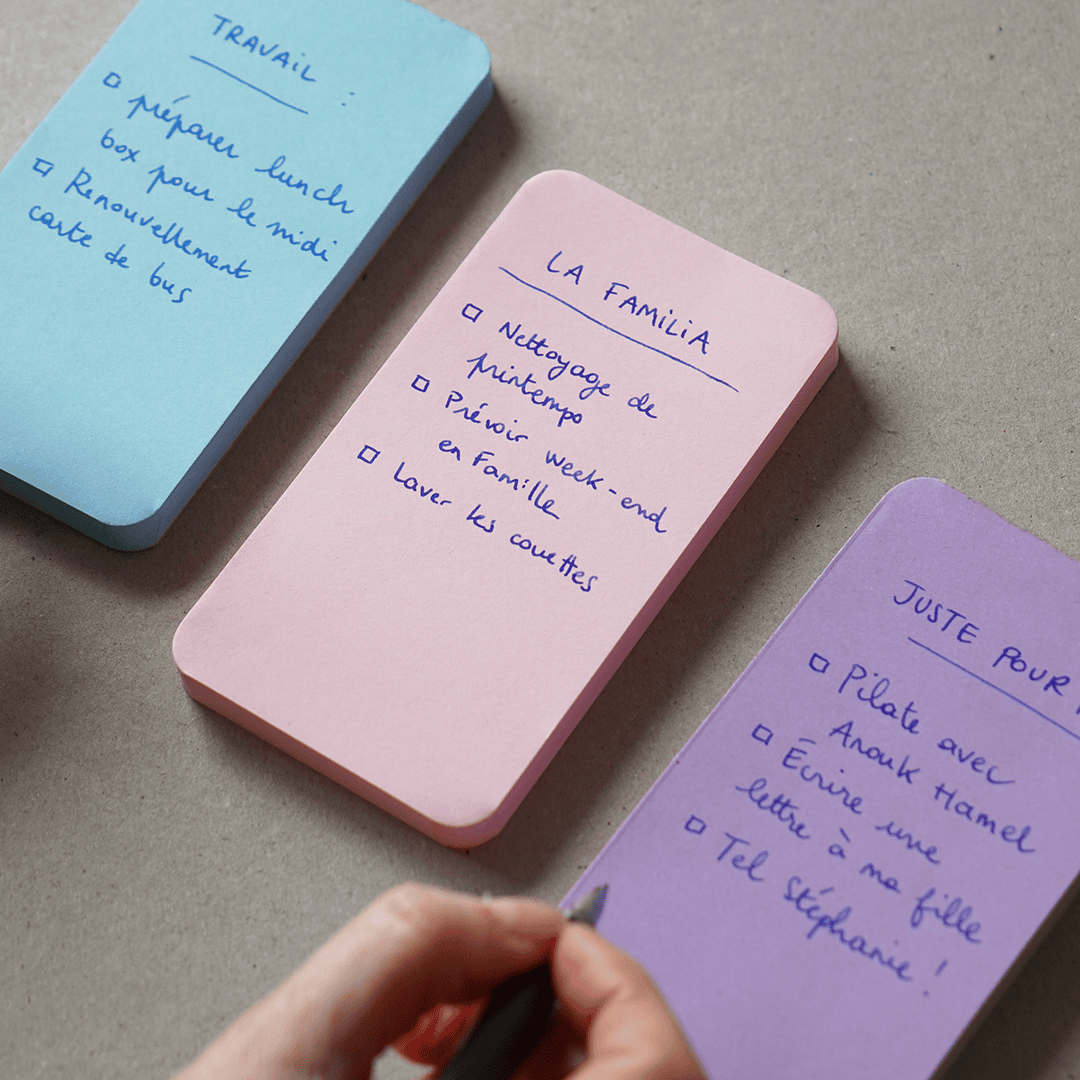 TRAVAIL :
□ préparer lunch
box pour le midi
□ Renouvellement
carte de bus
LA FAMILIA
□ Nettoyage de
printemps
□ Prévoir week-end
en Famille
□ Laver les couettes
JUSTE POUR
□ Pilate avec
Anouk Hamel
□ Écrire une
lettre à ma fille
□ Tel Stéphanie !